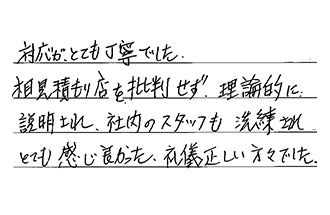 対応が、とても丁寧でした.
相見積もり店を批判せず、理論的に
説明され、社内のスタッフも 洗練され
とても 感じ良かった、礼儀正しい方々でした.